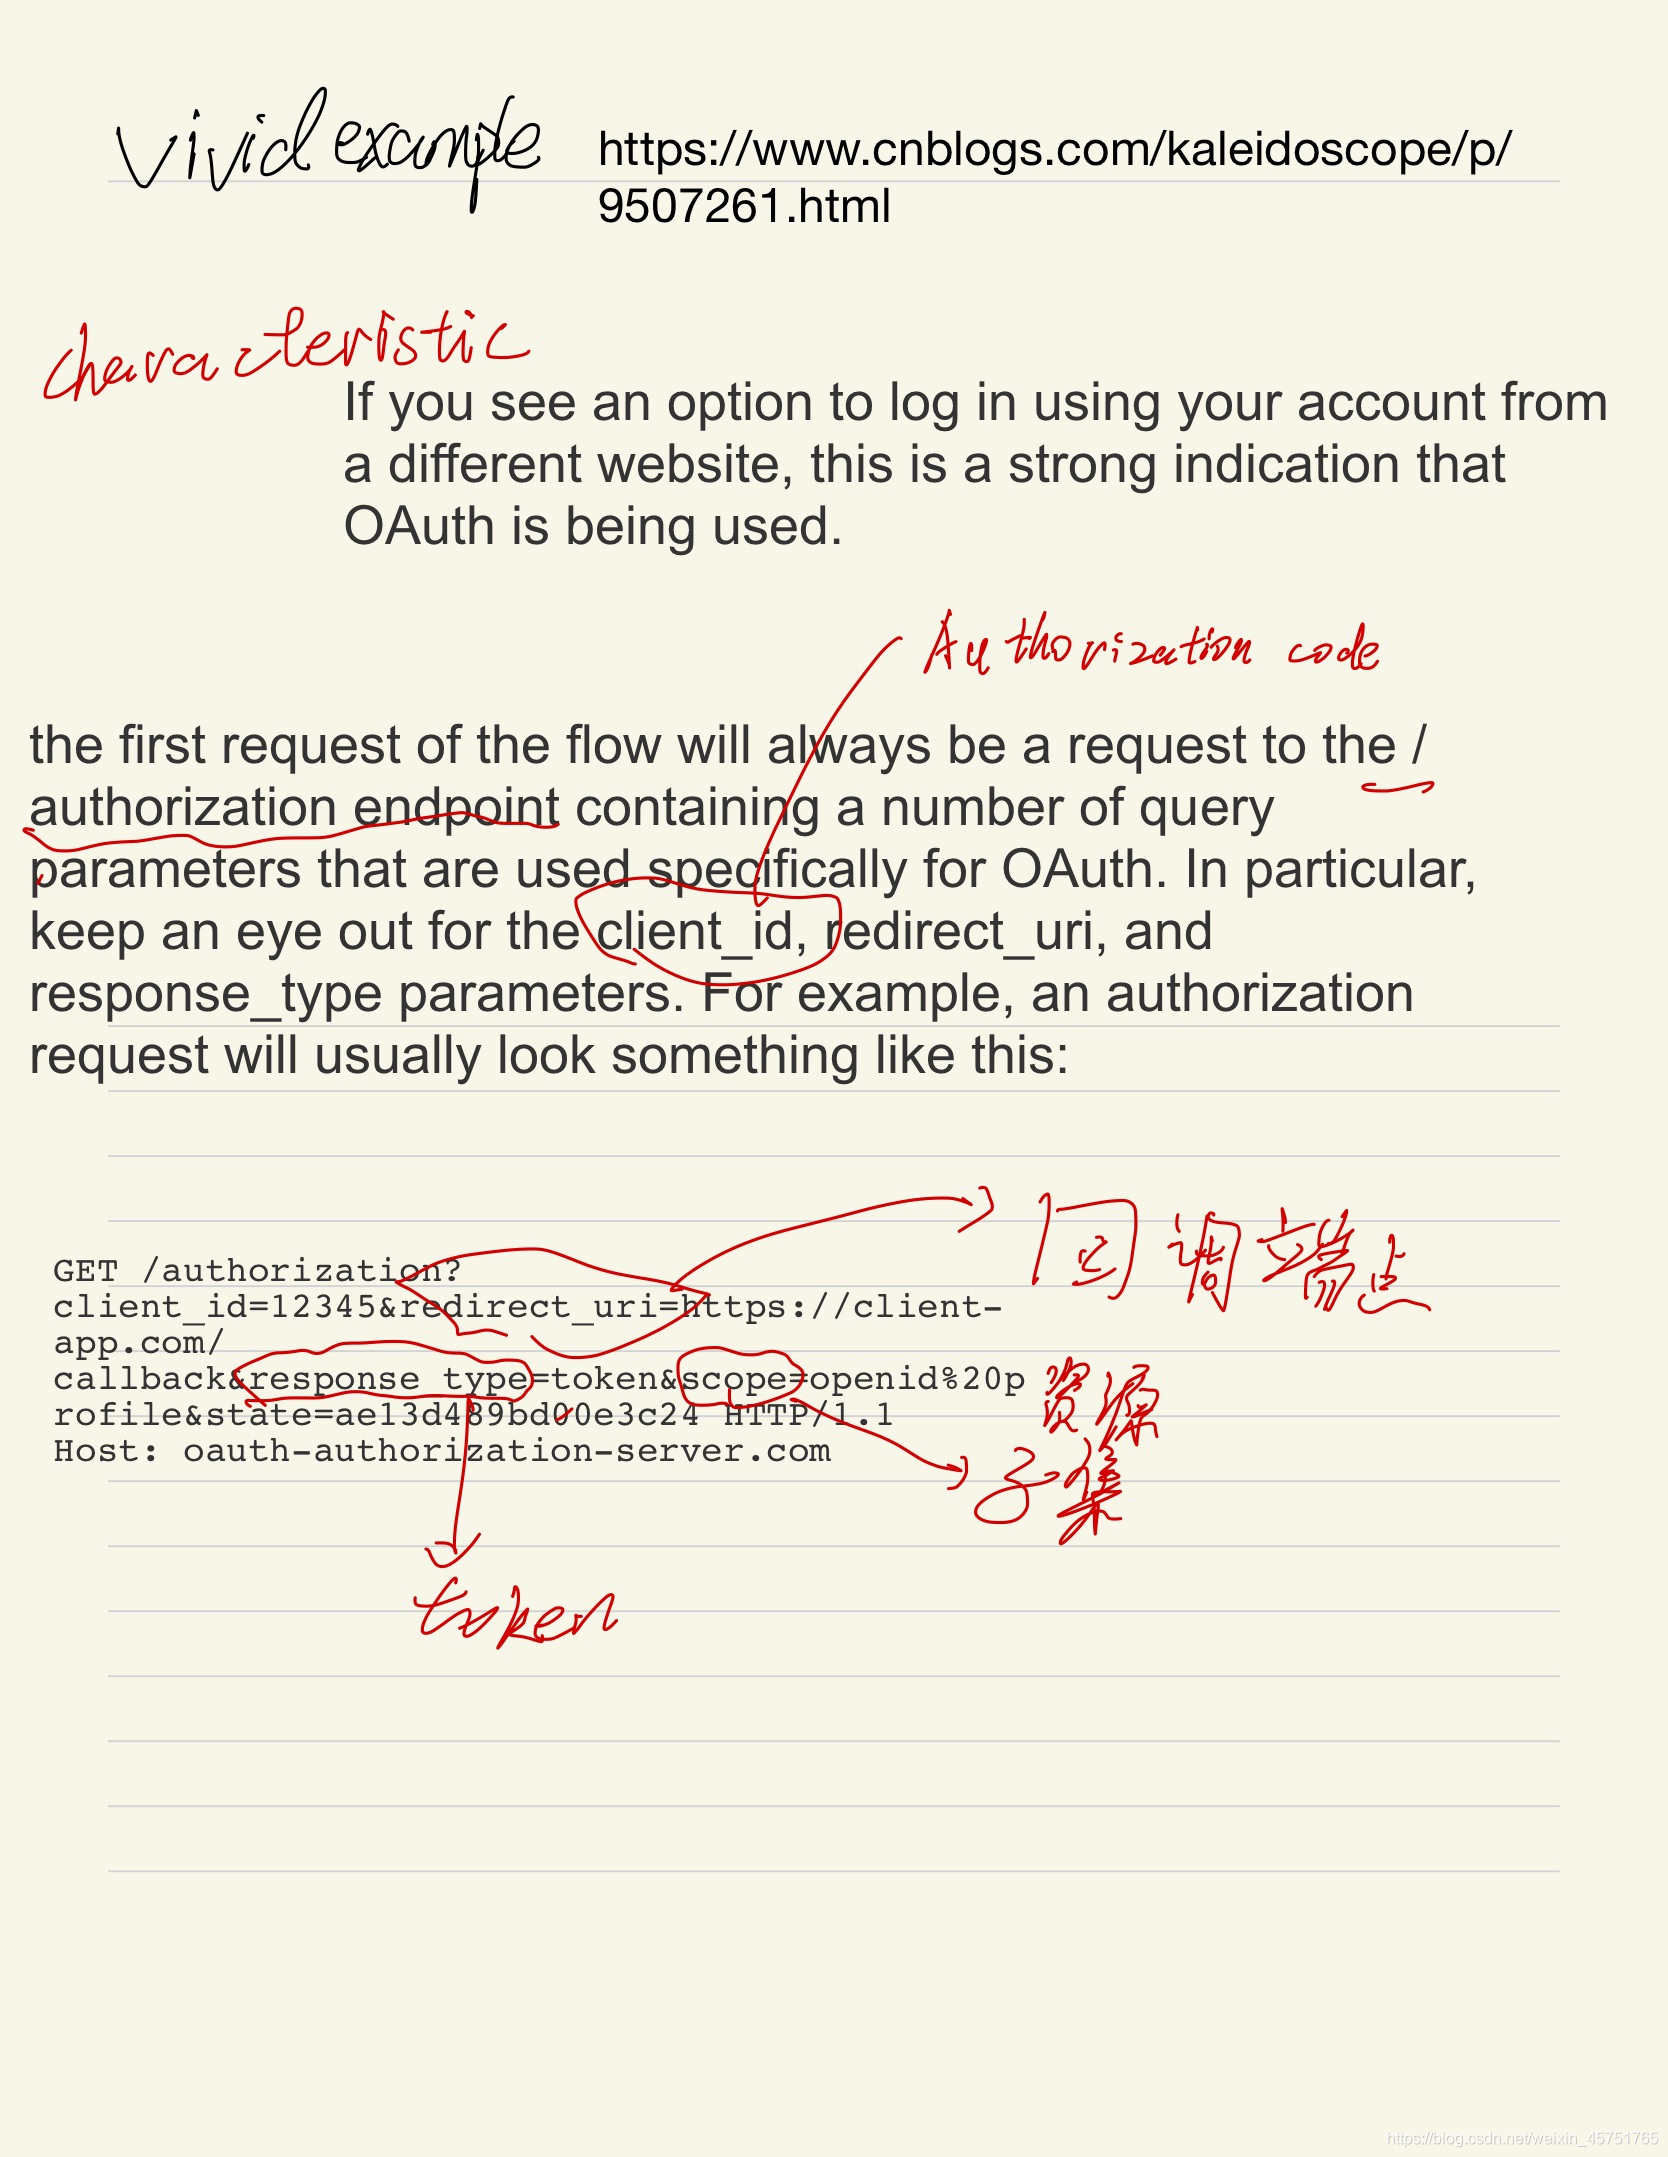 vivid example
https://www.cnblogs.com/kaleidoscope/p/
9507261.html
characteristic
If you see an option to log in using your account from
a different website, this is a strong indication that
OAuth is being used.
Authorization code
the first request of the flow will always be a request to the /
authorization endpoint containing a number of query
parameters that are used specifically for OAuth. In particular,
keep an eye out for the client_id, redirect_uri, and
response_type parameters. For example, an authorization
request will usually look something like this:
回调端点
GET /authorization?
client_id=12345&redirect_uri=https://client-
app.com/
callback&response_type=token&scope=openid%20p
rofile&state=ae13d489bd00e3c24 HTTP/1.1
Host: oauth-authorization-server.com
资源
子集
token
https://blog.csdn.net/weixin_45751765